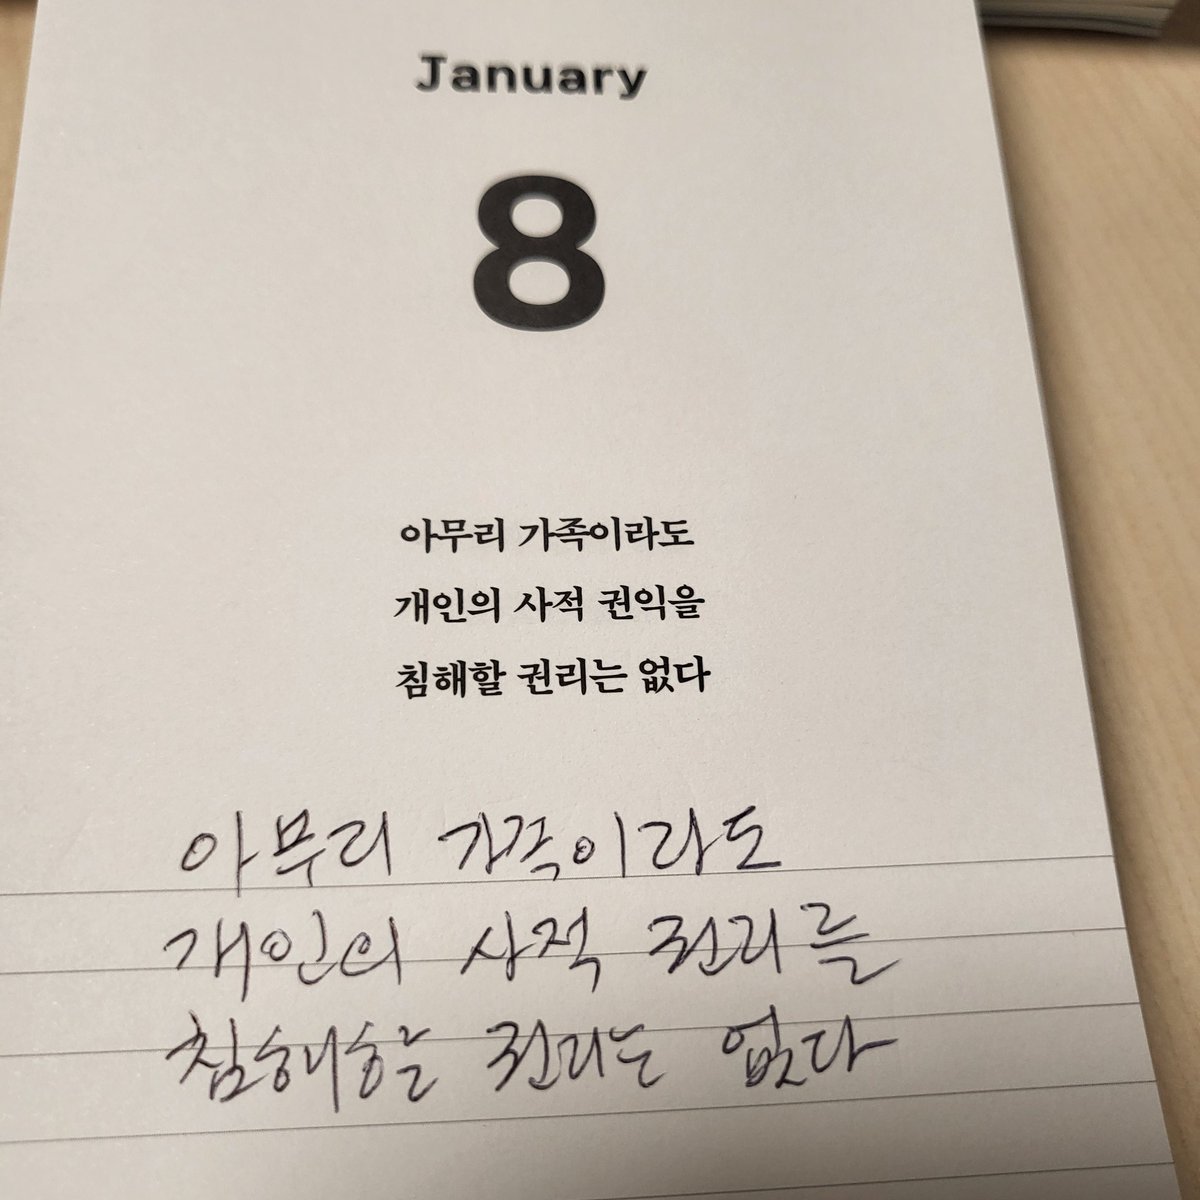 January
8
아무리 가족이라도
개인의 사적 권익을
침해할 권리는 없다
아무리 가족이라도
개인의 사적 권리를
침해할 권리는 없다